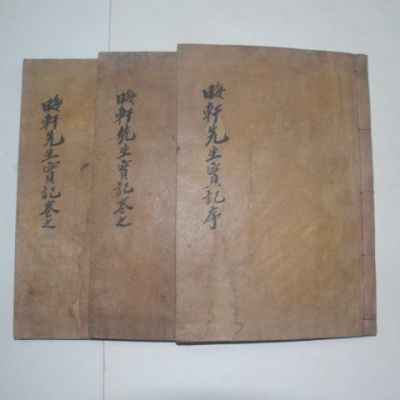 晦軒先生實記序
晦軒先生實記卷之
晦軒先生實記卷之